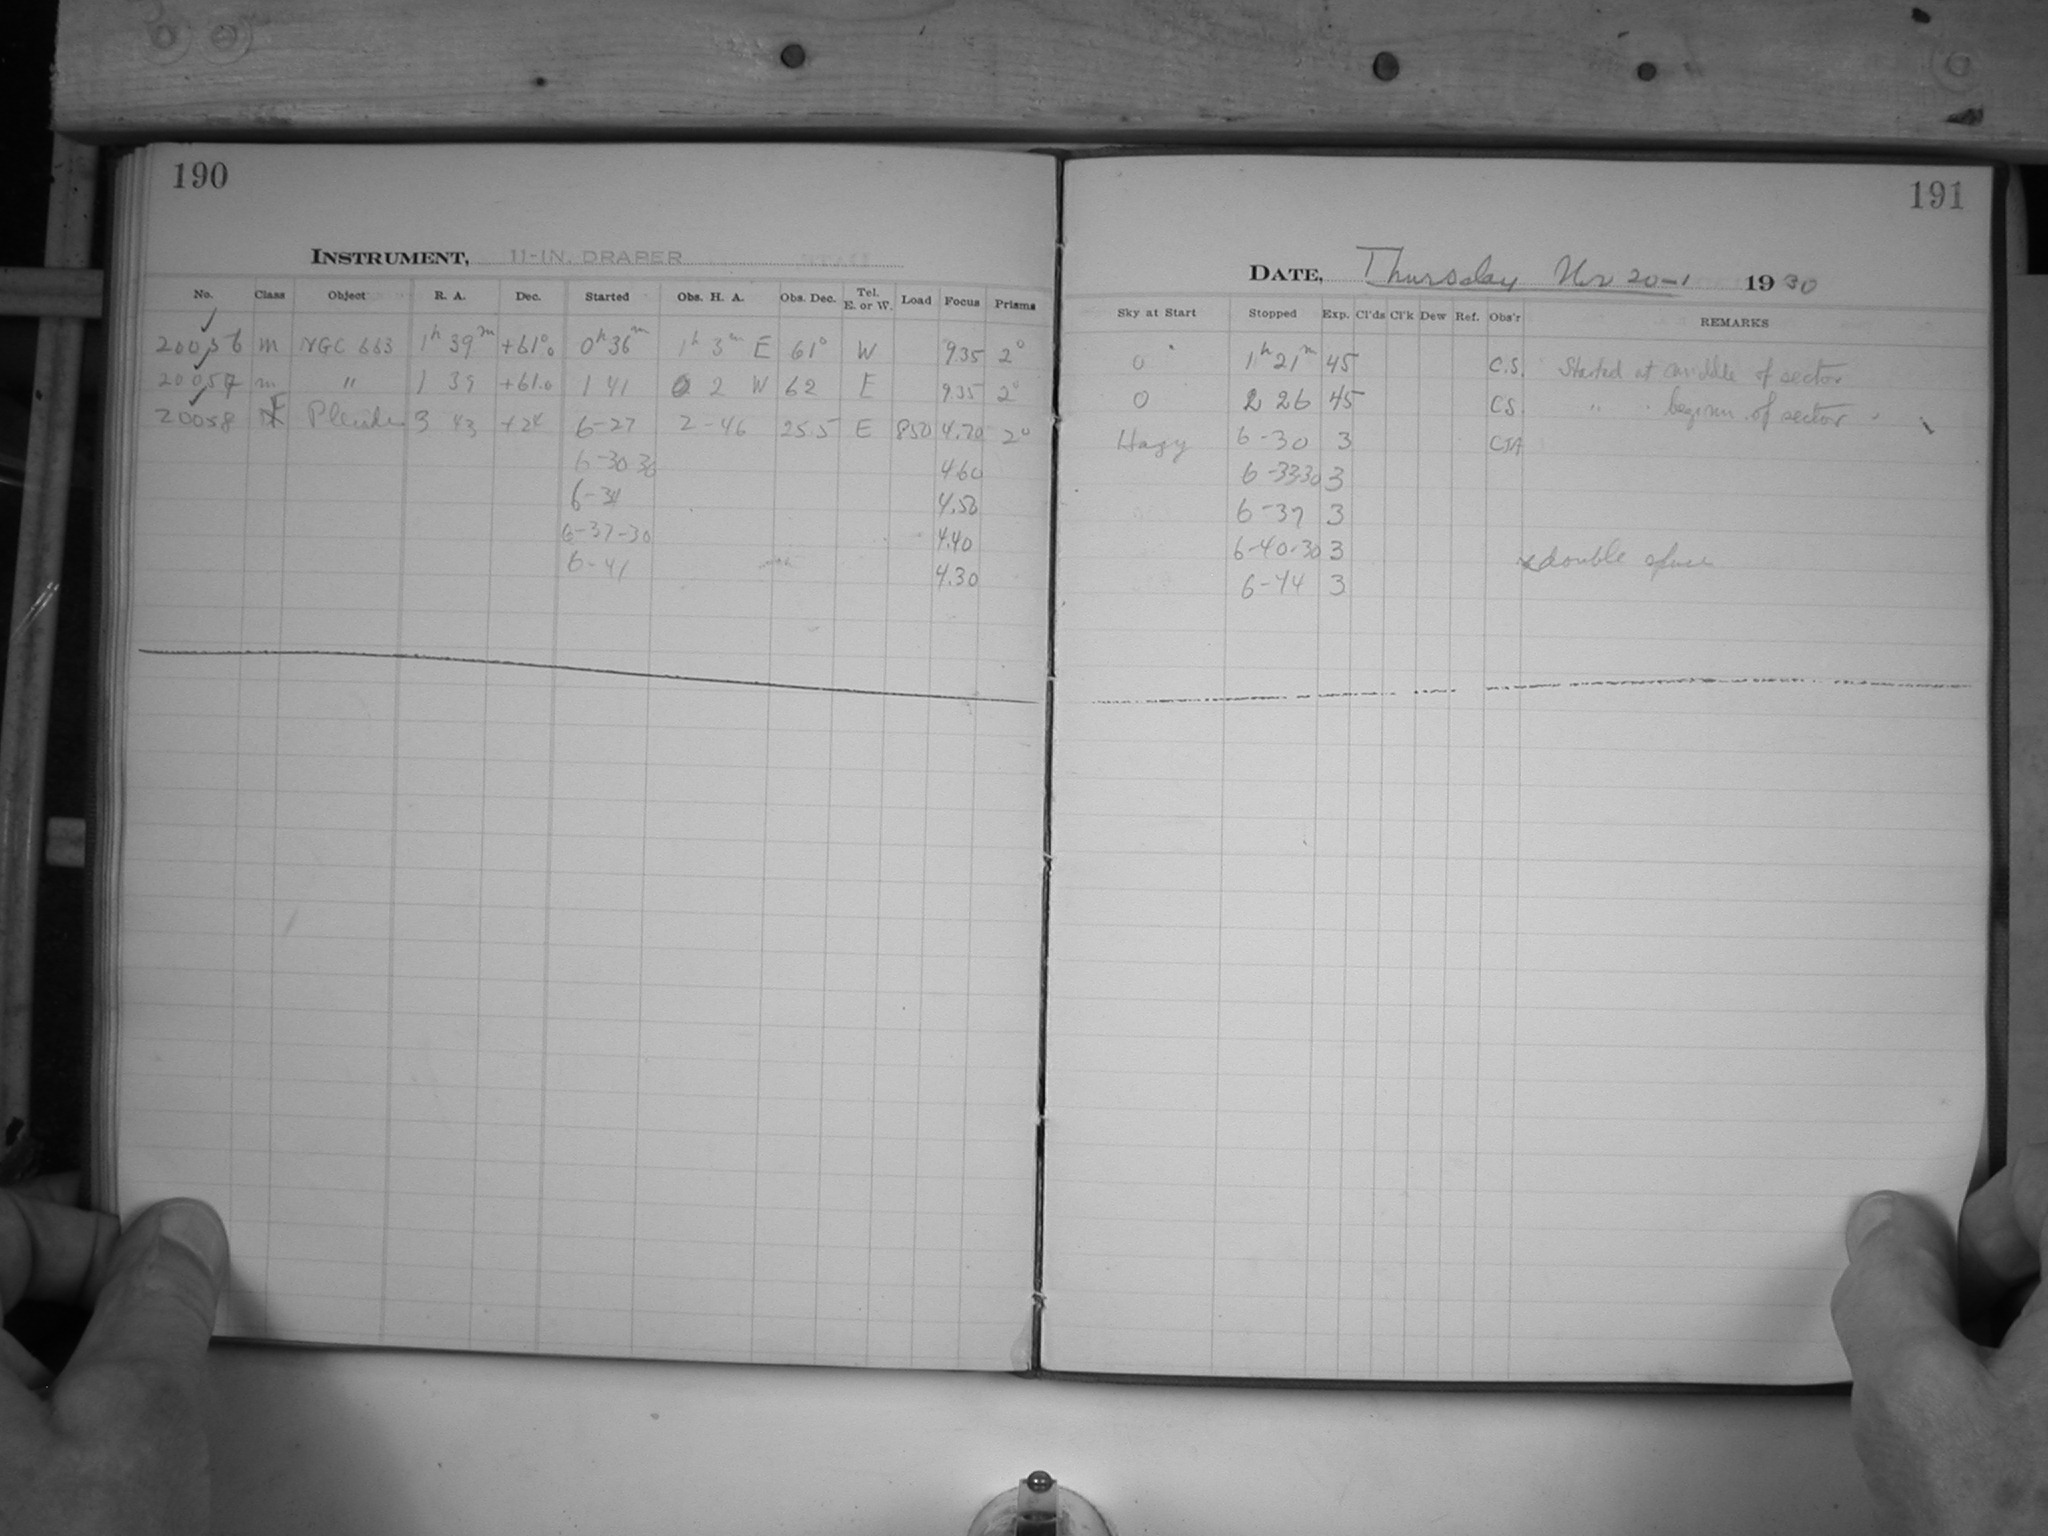 190
INSTRUMENT, 11-IN. DRAPER
No. Class Object R. A. Dec. Started Obs. H. A. Obs. Dec. Tel. E. or W. Load Focus Prisms
20056 m NGC 663 1h 39m +61°0 0h 36m 1h 3m E 61° W 9.35 2°
20057 m " 1 39 +61.0 1 41 0 2 W 62 E 9.35 2°
20058 F Pleiades 3 43 +24 6-27 2-46 25.5 E 850 4.70 2°
6-30 30 4.60
6-34 4.50
6-37-30 4.40
6-41 4.30
191
DATE, Thursday Nov 20-1 1930
Sky at Start Stopped Exp. Cl'ds Cl'k Dew Ref. Obs'r REMARKS
0 1h 21m 45 C.S. Started at middle of sector
0 2 26 45 CS. " " beginn. of sector
Hazy 6-30 3
6-33-30 3
6-37 3
6-40-30 3 x double
6-44 3